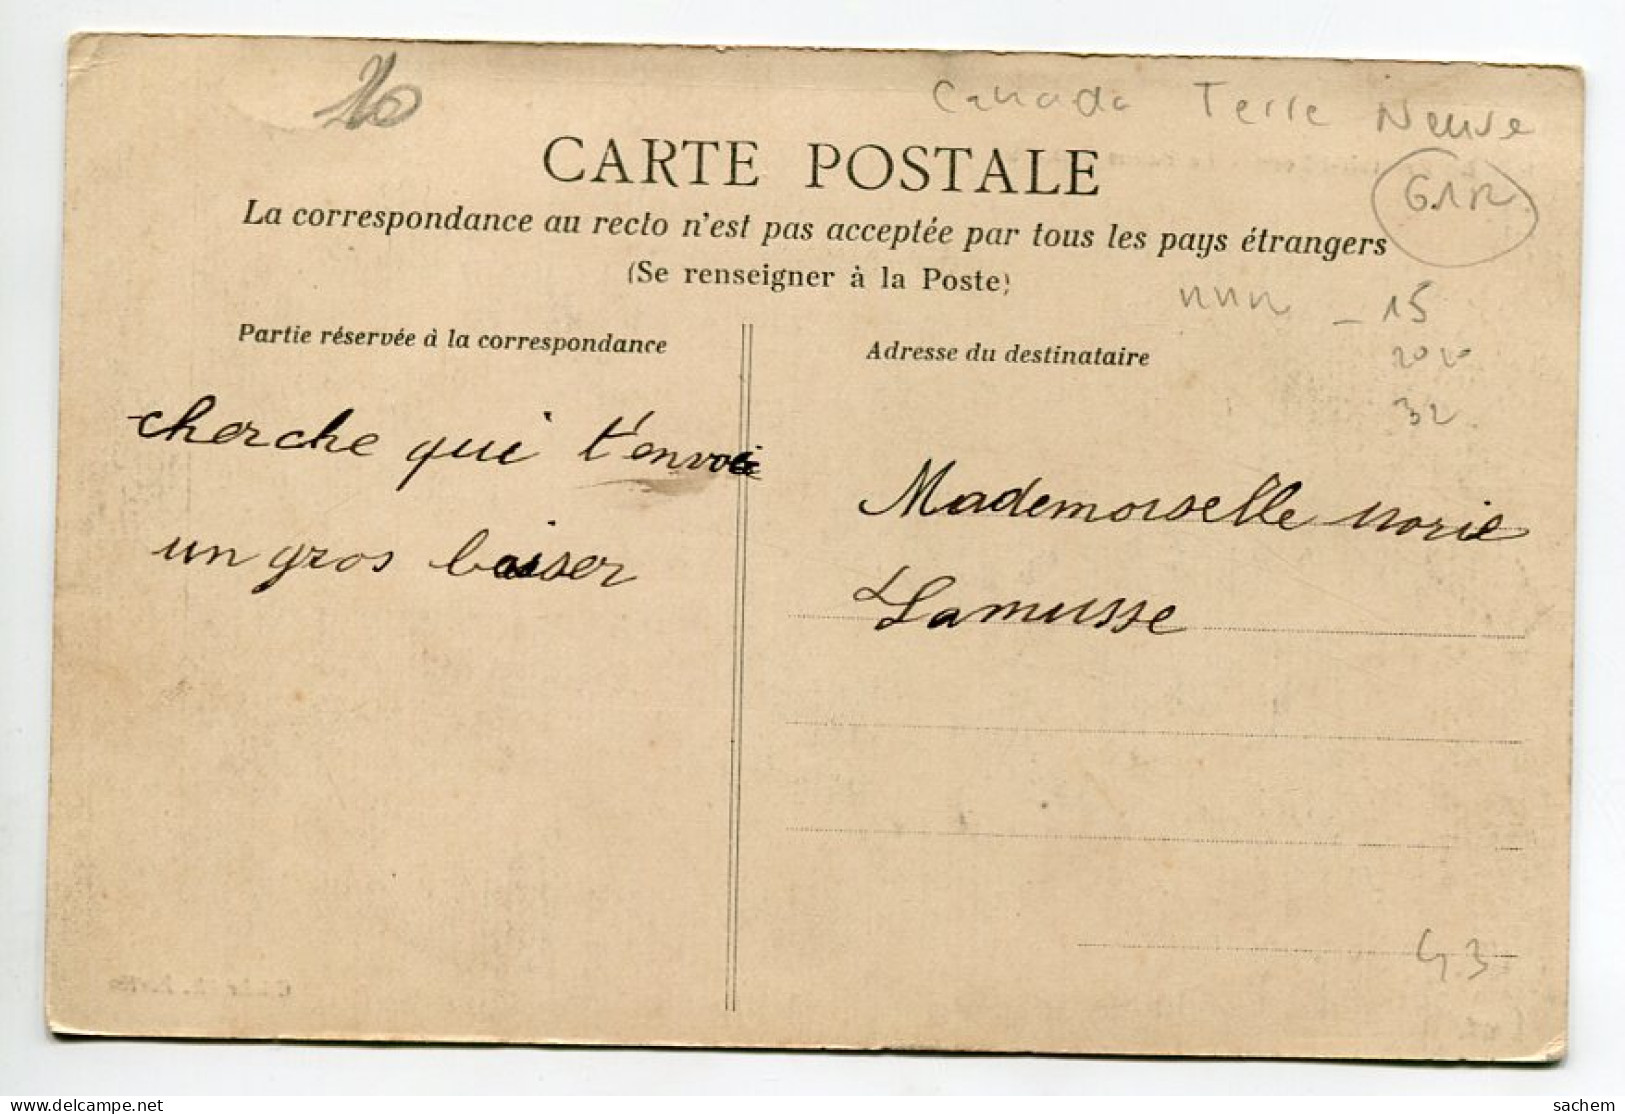 20
Canada Terre Neuve
CARTE POSTALE
G12
La correspondance au recto n'est pas acceptée par tous les pays étrangers
(Se renseigner à la Poste)
15
Partie réservée à la correspondance
Adresse du destinataire
32
cherche qui t'envoie
un gros baiser
Mademoiselle Marie
Lamusse
43
delcampe.net
sachem